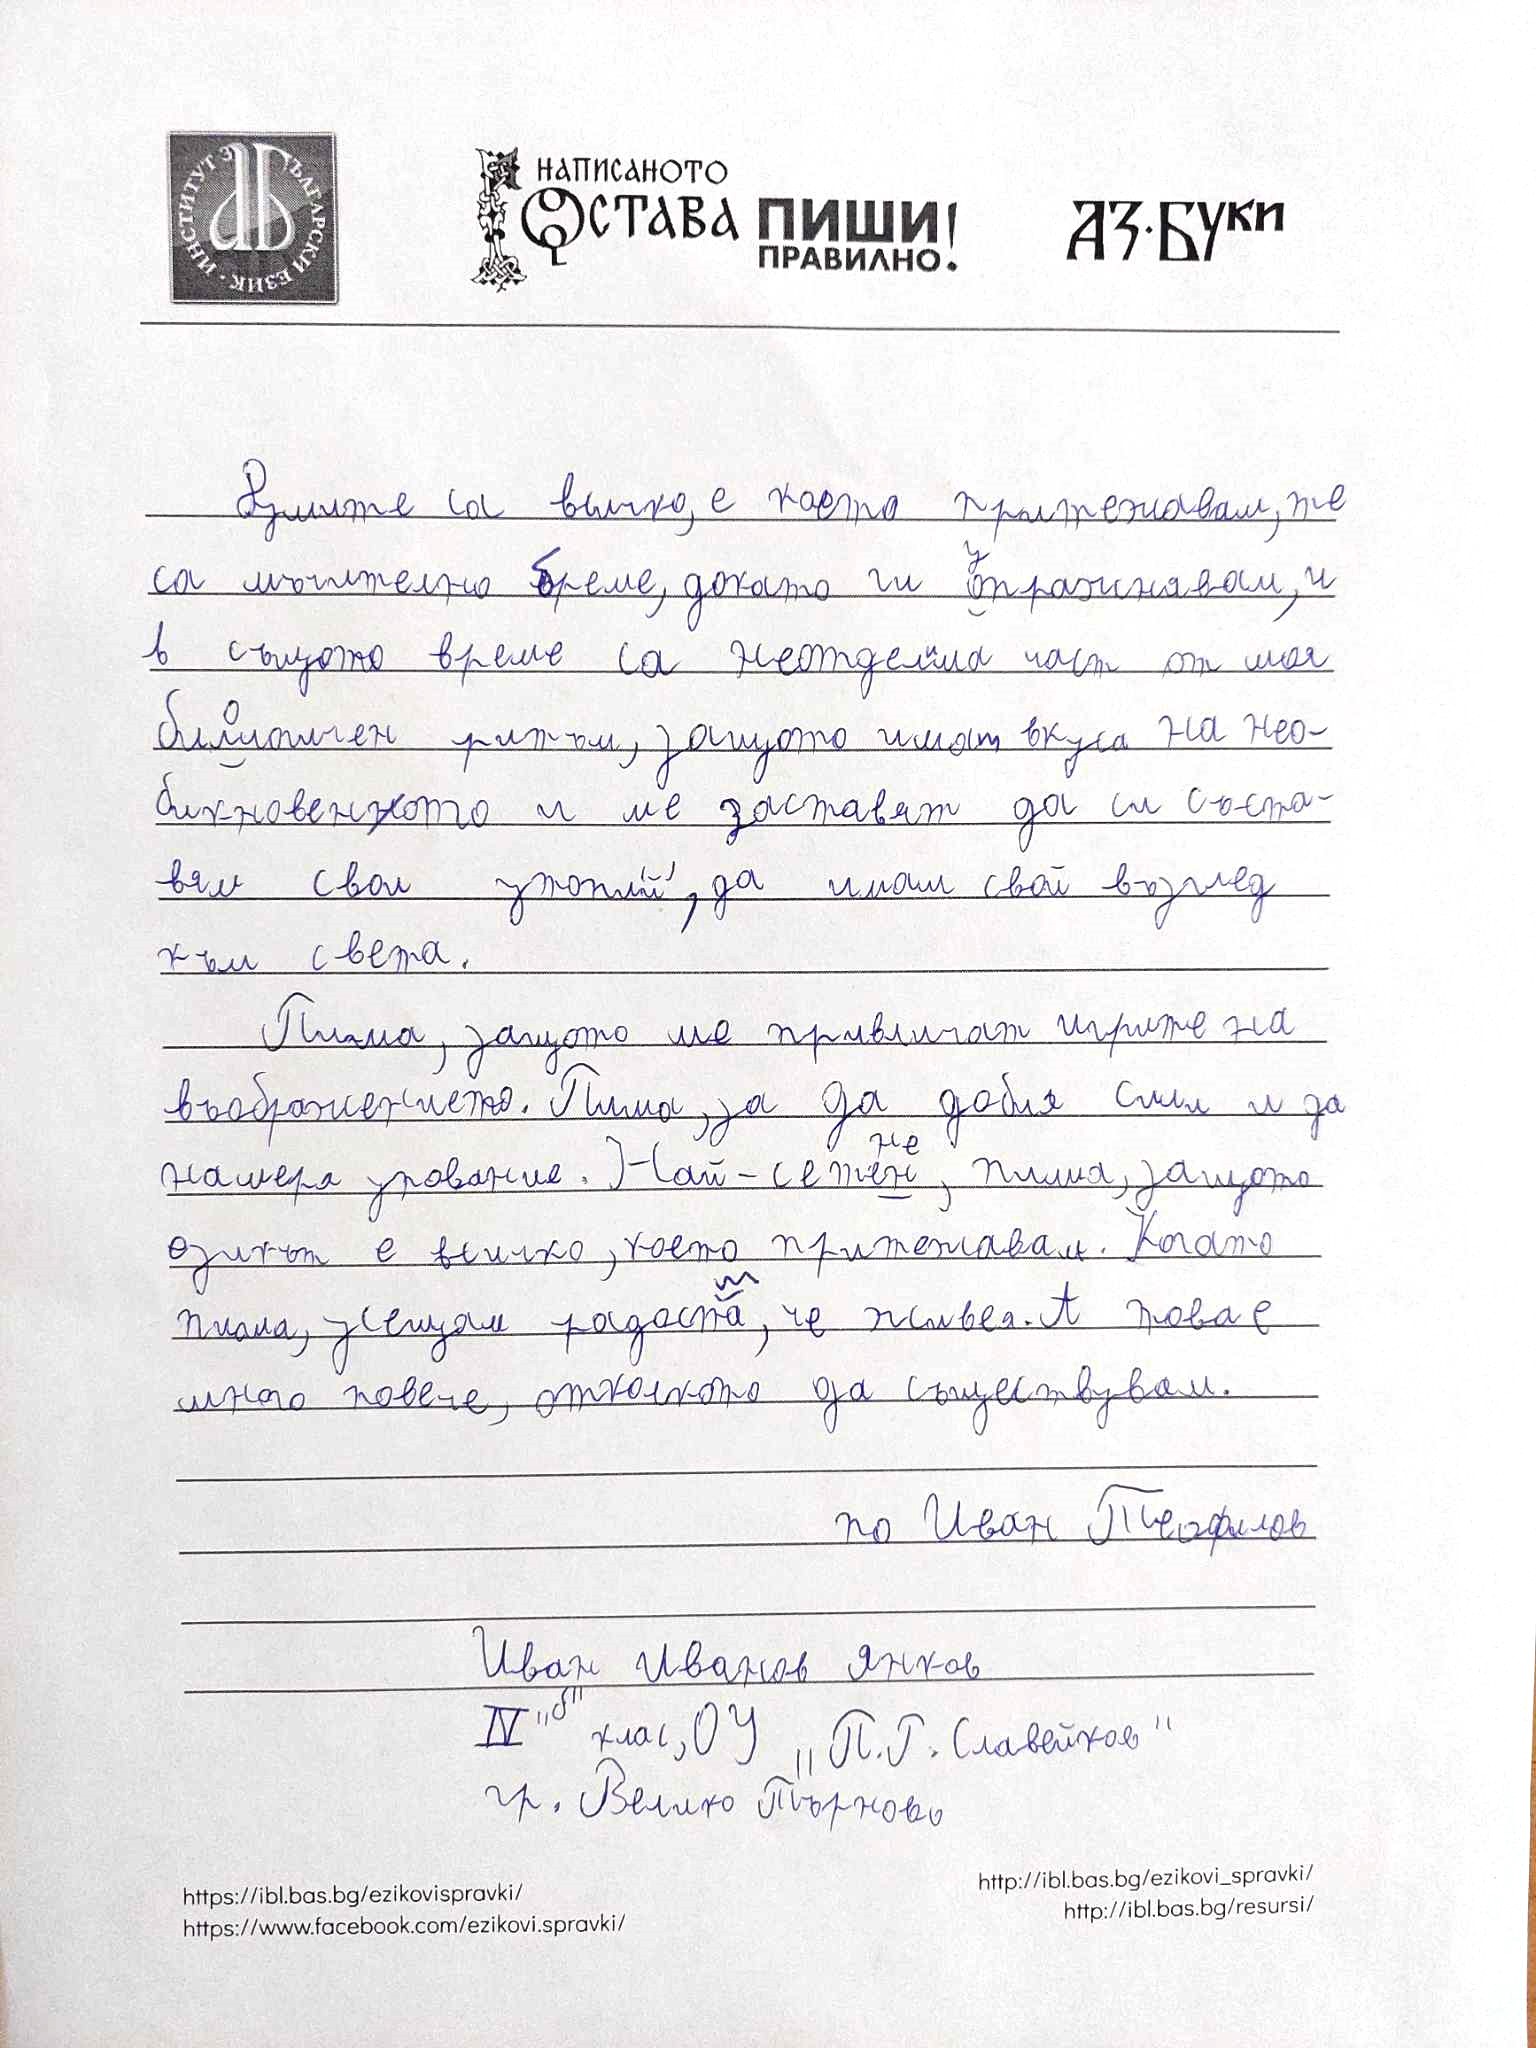 ИНСТИТУТ ЗА БЪЛГАРСКИ ЕЗИК
НАПИСАНОТО
ОСТАВА ПИШИ
ПРАВИЛНО!
АЗ·БУКИ
Думите са всичко, е което притежавам, те
са мъчително бреме, докато ги упражнявам, и
в същото време са неотделима част от моя
биологичен ритъм, защото имат вкуса на нео-
бикновенното и ме заставят да си съста-
вям свои утопий, да имам свой възглед
към света.
Пиша, защото ме привличат игрите на
въображението. Пиша, за да добия смил и да
намеря упование. Най-сетне, пиша, защото
езикът е всичко, което притежавам. Когато
пиша, усещам радостта, че живея. А това е
много повече, отколкото да съществувам.
по Иван Теофилов
Иван Иванов Янков
IV "б" клас, ОУ "П.Р. Славейков"
гр. Велико Търново
https://ibl.bas.bg/ezikovispravki/
https://www.facebook.com/ezikovi.spravki/
http://ibl.bas.bg/ezikovi_spravki/
http://ibl.bas.bg/resursi/